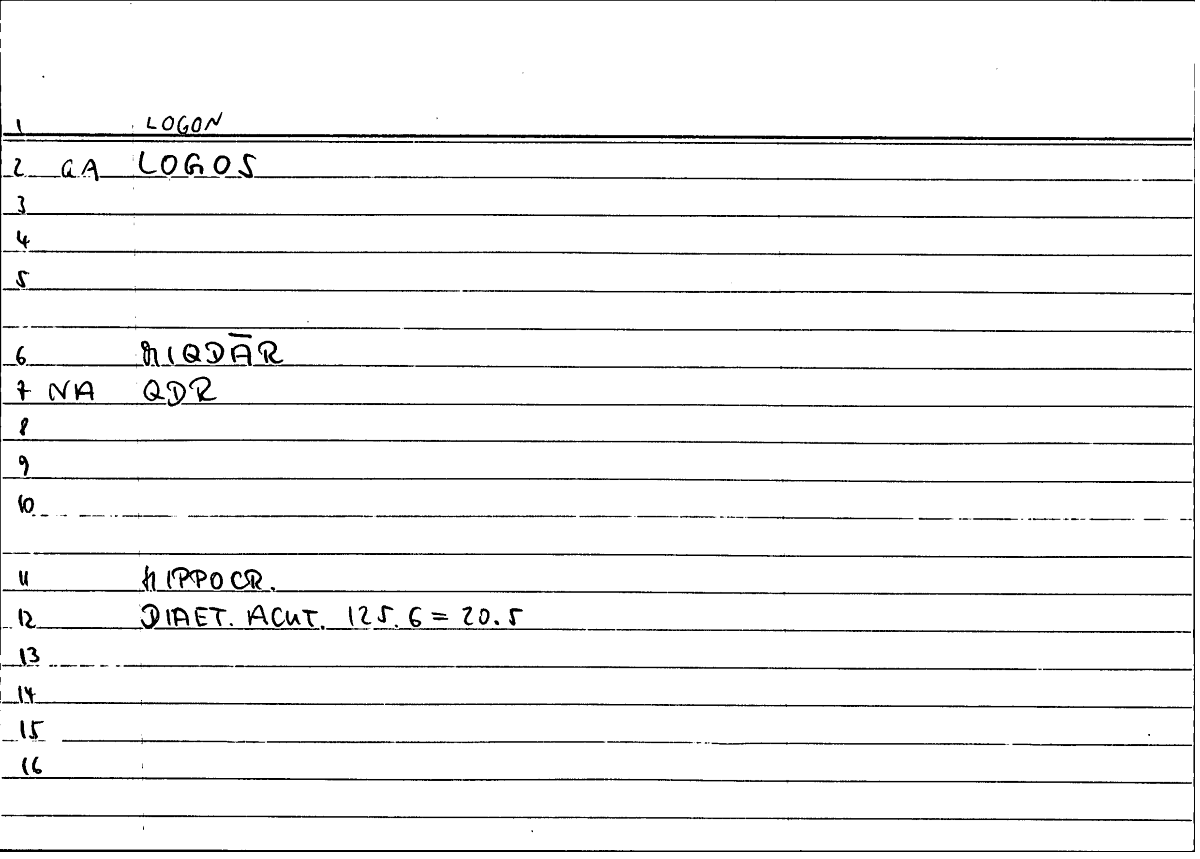 1 LOGON
2 GA LOGOS
3
4
5
6 MIQDĀR
7 NA QDR
8
9
10
11 HIPPOCR.
12 DIAET. ACUT. 125.6 = 20.5
13
14
15
16